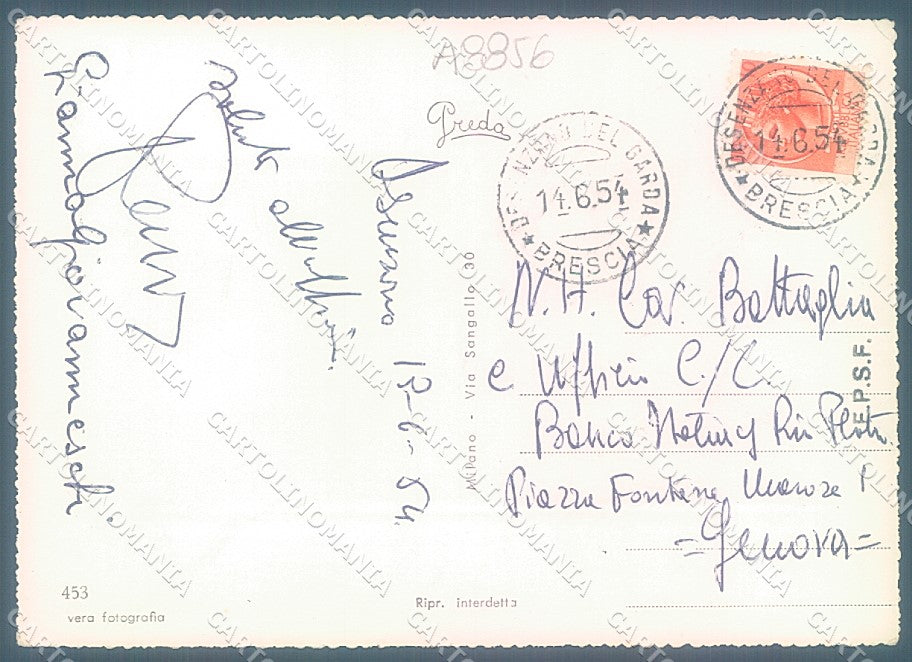 A8856
Greda
DESENZANO DEL GARDA
14.6.54
BRESCIA
DESENZANO DEL GARDA
14.6.54
BRESCIA
Saluti
Desenzano 13-6-54
Milano - Via Sangallo 30
N.H. Cav. Battaglia
e Ufficio C/C.
Banco
Piazza Fontane Marose
=Genova=
E.P.S.F.
453
vera fotografia
Ripr. interdetta
CARTOLINOMANIA